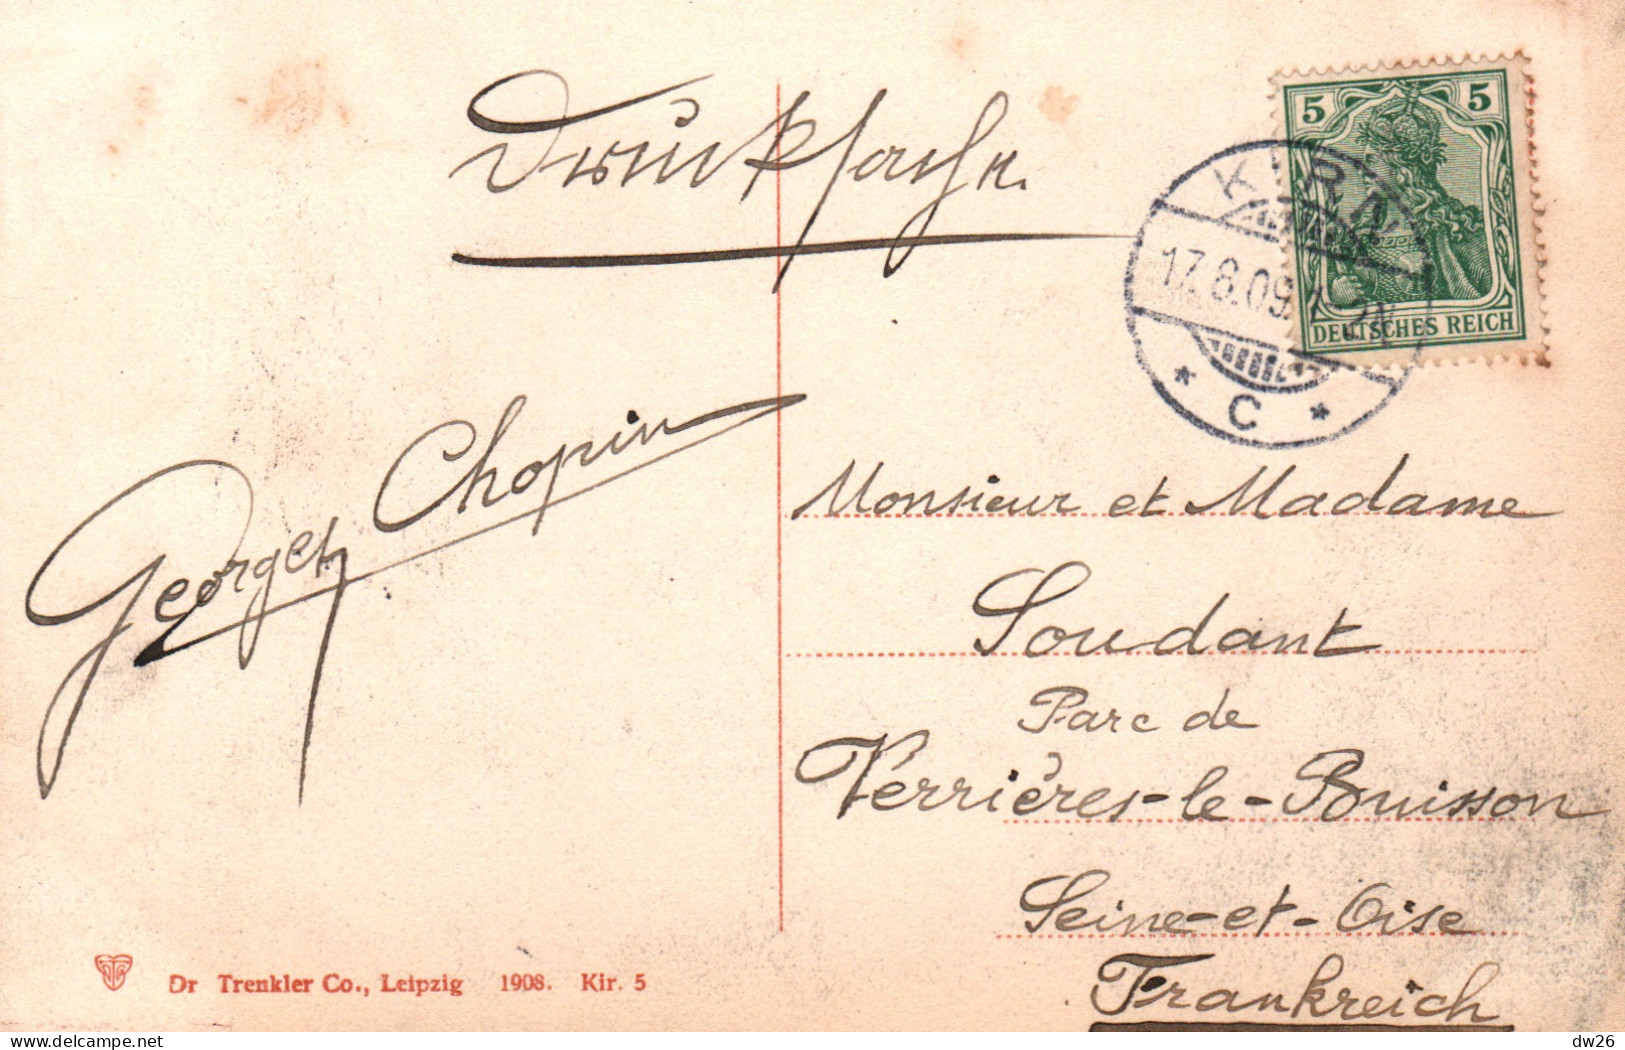 Drucksache.
5 5
DEUTSCHES REICH
KIRN
17.8.09. 1-2N
* C *
Georges Chopin
Monsieur et Madame
Soudant
Parc de
Verrières-le-Buisson
Seine-et-Oise
Frankreich
Dr Trenkler Co., Leipzig 1908. Kir. 5
delcampe.net
dw26